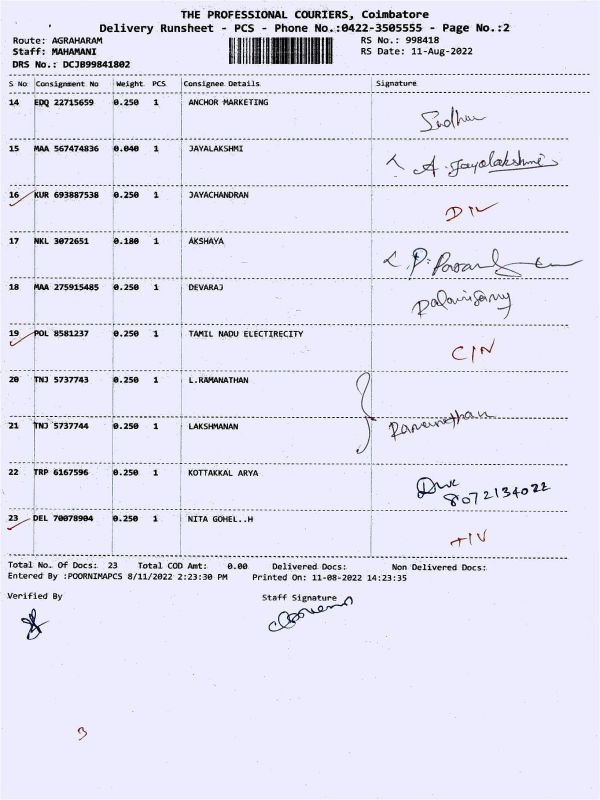 THE PROFESSIONAL COURIERS, Coimbatore
Delivery Runsheet - PCS - Phone No.:0422-3505555 - Page No.:2
Route: AGRAHARAM RS No.: 998418
Staff: MAHAMANI RS Date: 11-Aug-2022
DRS No.: DCJB99841802
S No Consignment No Weight PCS Consignee Details Signature
14 EDQ 22715659 0.250 1 ANCHOR MARKETING
Sudhar
15 MAA 567474836 0.040 1 JAYALAKSHMI
A. Jayalakshmi
16 KUR 693887538 0.250 1 JAYACHANDRAN
17 NKL 3072651 0.180 1 AKSHAYA
18 MAA 275915485 0.250 1 DEVARAJ
Palanisamy
19 POL 8581237 0.250 1 TAMIL NADU ELECTIRECITY
20 TNJ 5737743 0.250 1 L.RAMANATHAN
21 TNJ 5737744 0.250 1 LAKSHMANAN
Ramanathan
22 TRP 6167596 0.250 1 KOTTAKKAL ARYA
8072134022
23 DEL 70078904 0.250 1 NITA GOHEL..H
Total No. Of Docs: 23 Total COD Amt: 0.00 Delivered Docs: Non Delivered Docs:
Entered By :POORNIMAPCS 8/11/2022 2:23:30 PM Printed On: 11-08-2022 14:23:35
Verified By Staff Signature
3